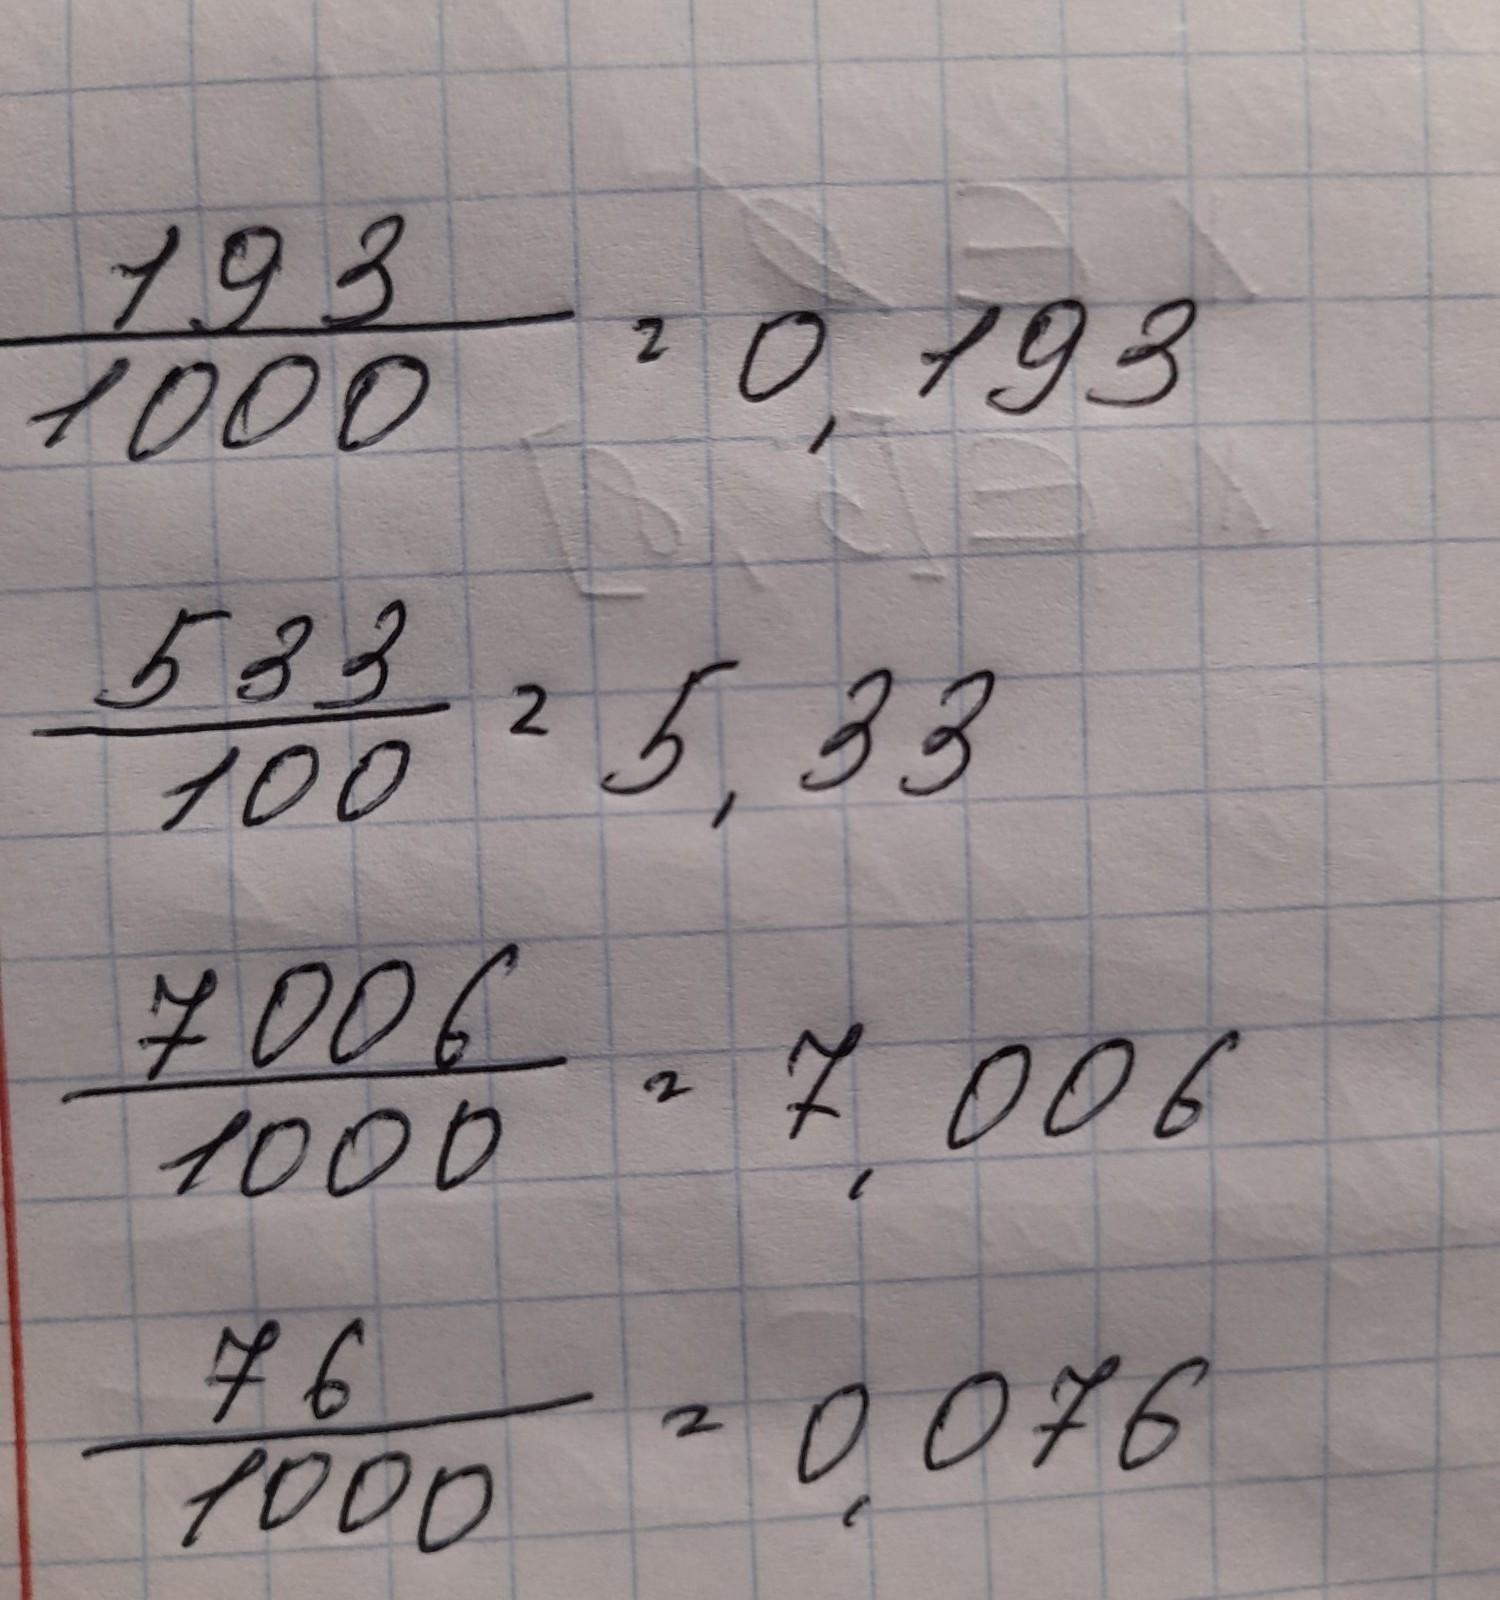 193/1000 = 0,193
533/100 = 5,33
7006/1000 = 7,006
76/1000 = 0,076